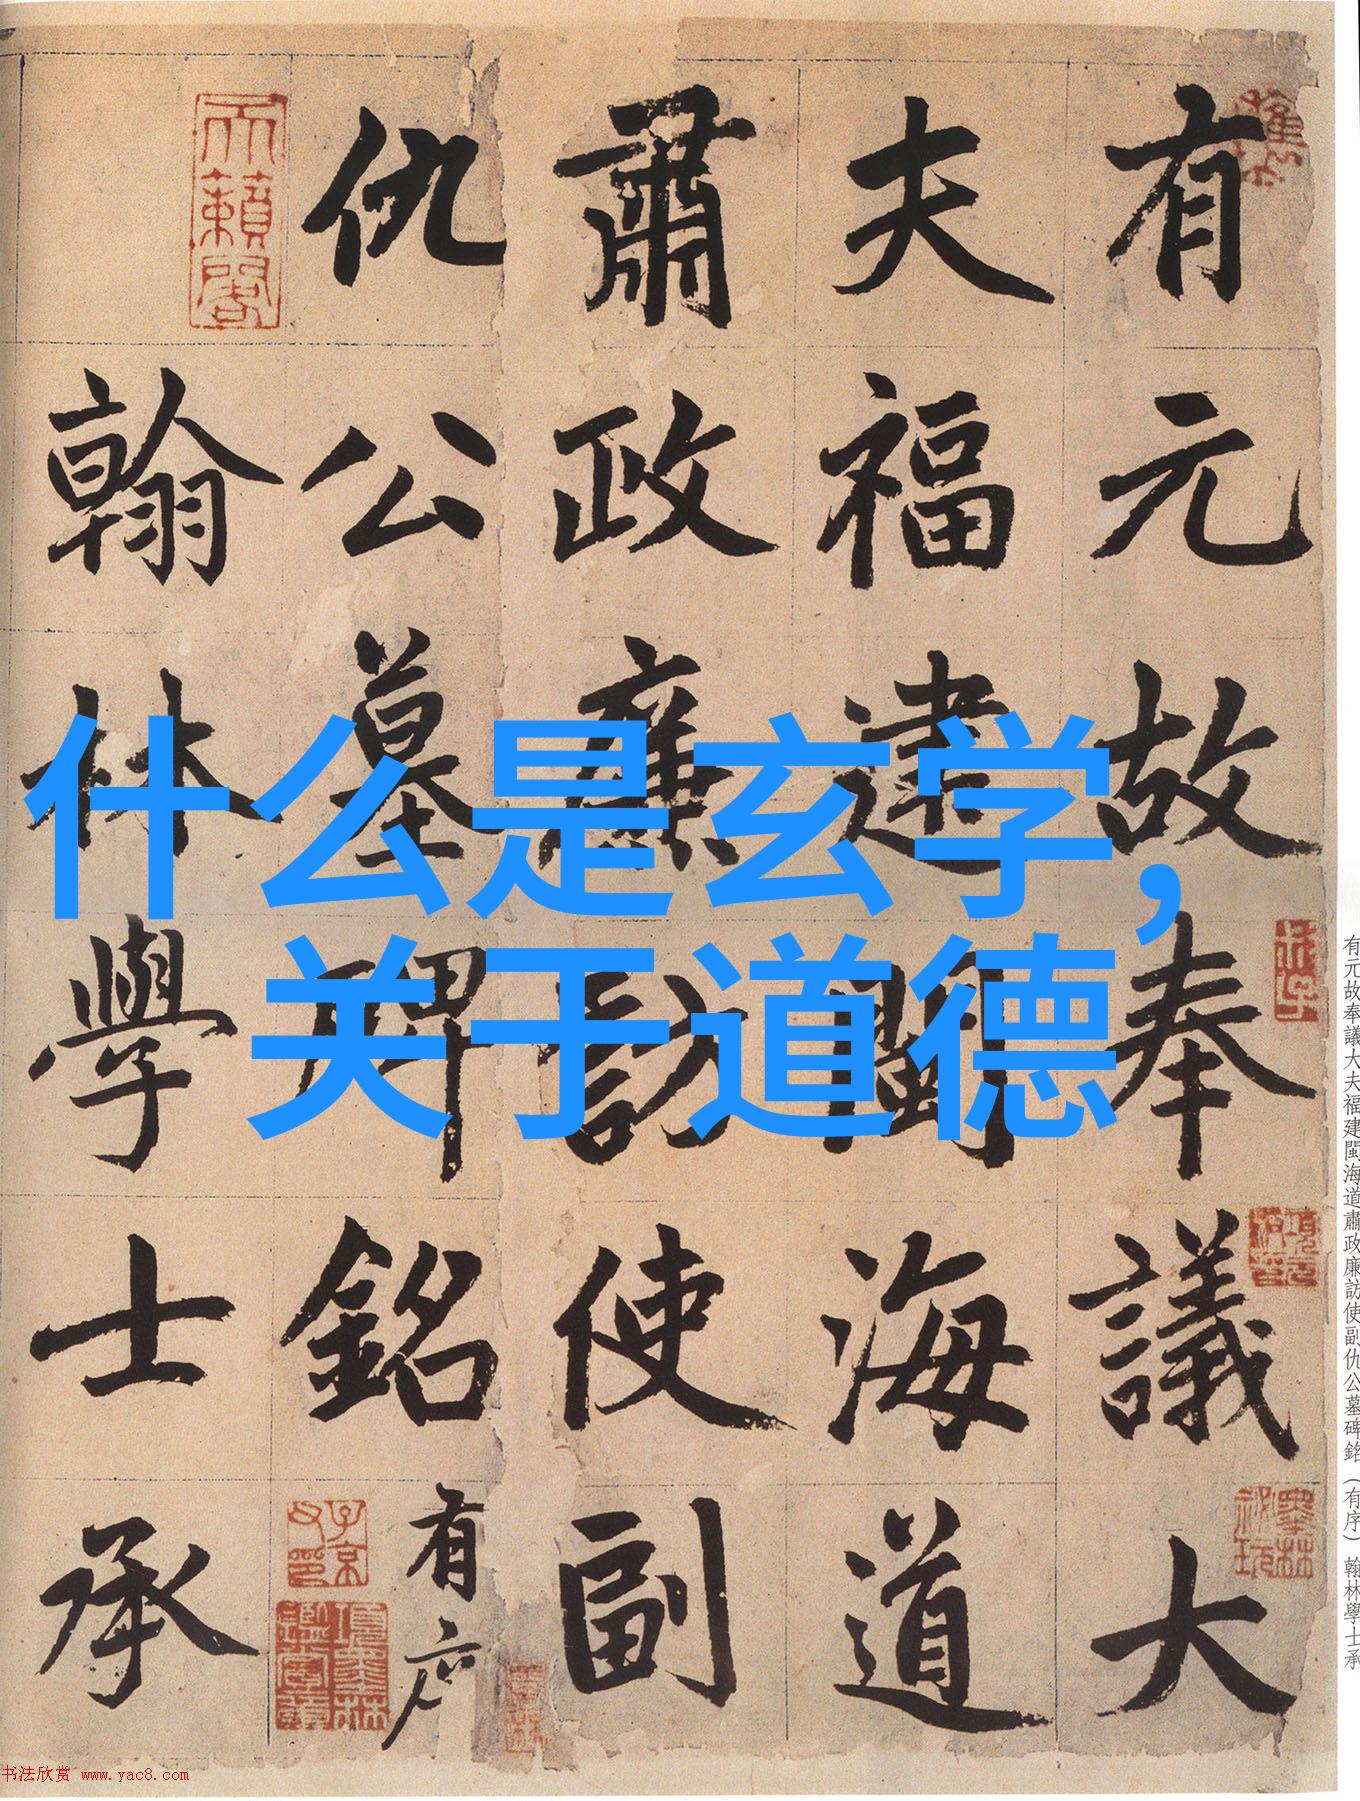 什么是玄学，
关于道德
有元故奉議大
夫福建閩海道
肅政廉訪使副
仇公墓碑銘 有序
翰林學士承
天籟閣
子京父印
項墨林鑑賞章
墨林祕玩
有元故奉議大夫福建閩海道肅政廉訪使副仇公墓碑銘（有序）翰林學士承
书法欣赏 www.yac8.com